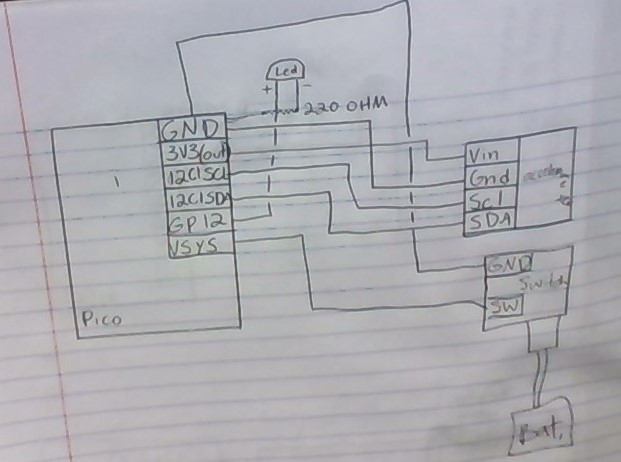 Led
+ -
220 OHM
GND
3V3(out)
I2C1SCL
I2C1SDA
GP12
VSYS
Pico
Vin
Gnd
Scl
SDA
GND
Switch
SW
Bat.